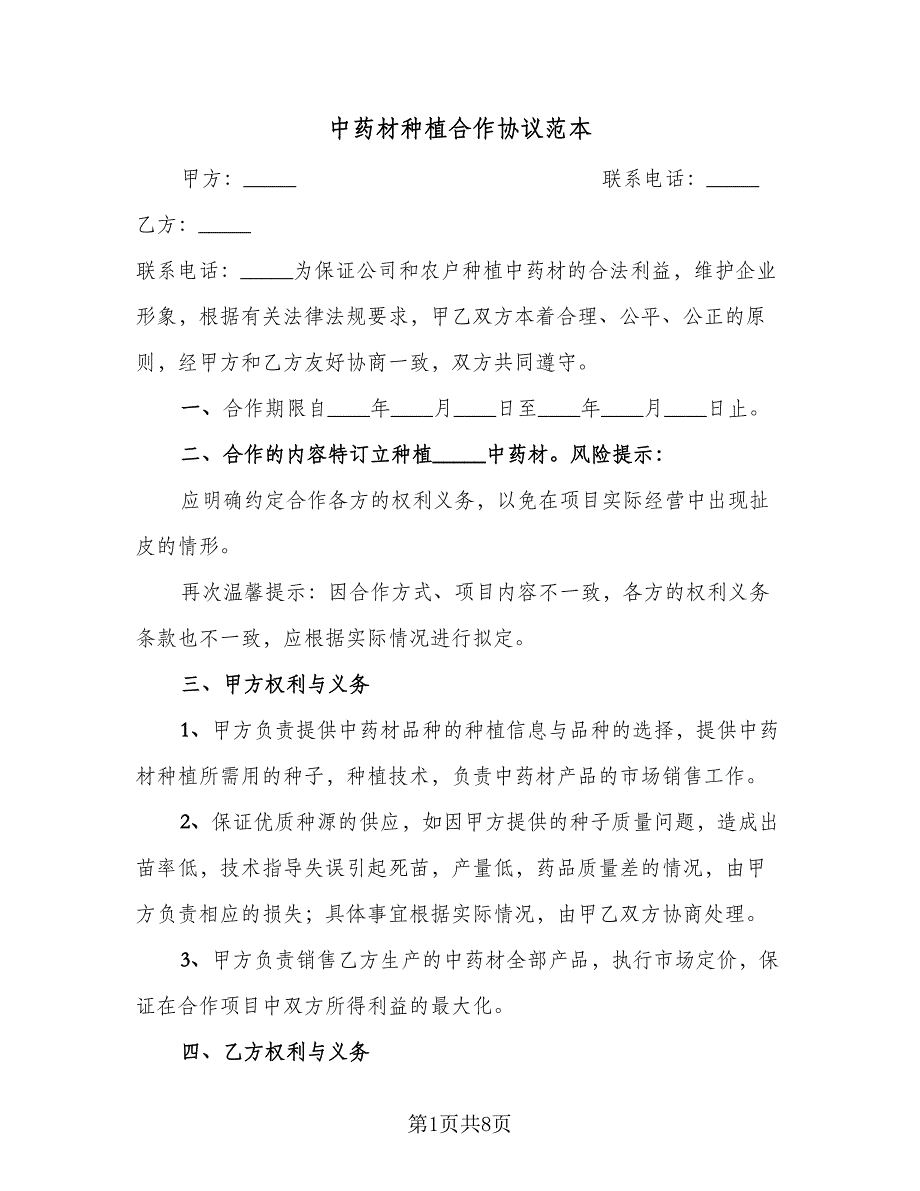 中药材种植合作协议范本
甲方：_____ 联系电话：_____
乙方：_____
联系电话：_____为保证公司和农户种植中药材的合法利益，维护企业
形象，根据有关法律法规要求，甲乙双方本着合理、公平、公正的原
则，经甲方和乙方友好协商一致，双方共同遵守。
一、合作期限自____年____月____日至____年____月____日止。
二、合作的内容特订立种植_____中药材。风险提示：
应明确约定合作各方的权利义务，以免在项目实际经营中出现扯
皮的情形。
再次温馨提示：因合作方式、项目内容不一致，各方的权利义务
条款也不一致，应根据实际情况进行拟定。
三、甲方权利与义务
1、甲方负责提供中药材品种的种植信息与品种的选择，提供中药
材种植所需用的种子，种植技术，负责中药材产品的市场销售工作。
2、保证优质种源的供应，如因甲方提供的种子质量问题，造成出
苗率低，技术指导失误引起死苗，产量低，药品质量差的情况，由甲
方负责相应的损失；具体事宜根据实际情况，由甲乙双方协商处理。
3、甲方负责销售乙方生产的中药材全部产品，执行市场定价，保
证在合作项目中双方所得利益的最大化。
四、乙方权利与义务
第1页共8页